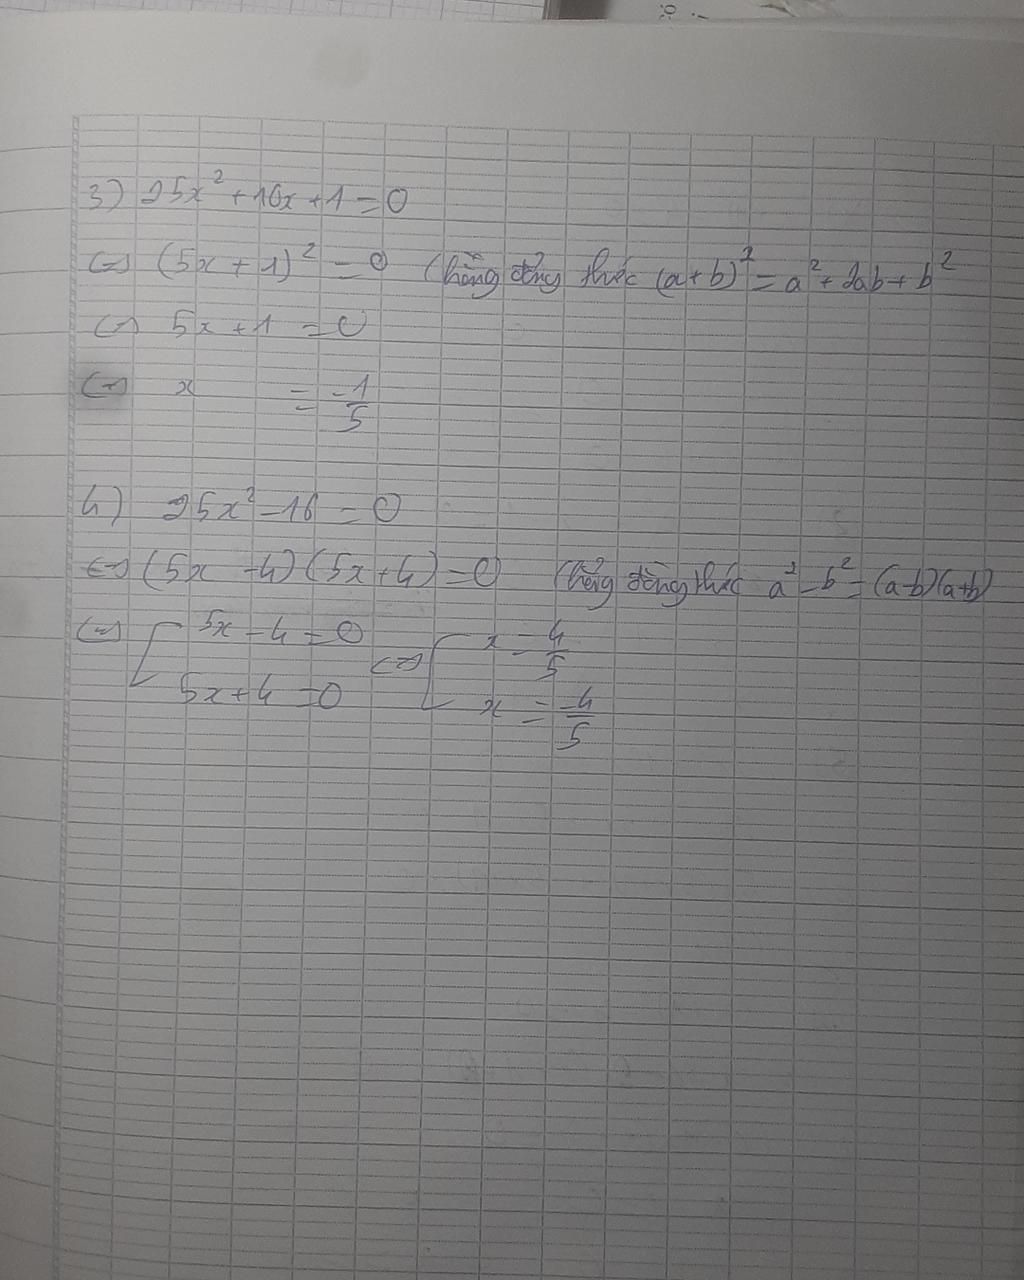 3) 25x² + 10x + 1 = 0
<=> (5x + 1)² = 0 (hằng đẳng thức (a+b)² = a² + 2ab + b²
<=> 5x + 1 = 0
<=> x = -1/5
4) 25x² - 16 = 0
<=> (5x - 4)(5x + 4) = 0 (hằng đẳng thức a² - b² = (a-b)(a+b)
<=> [ 5x - 4 = 0 <=> [ x = 4/5
5x + 4 = 0 x = -4/5